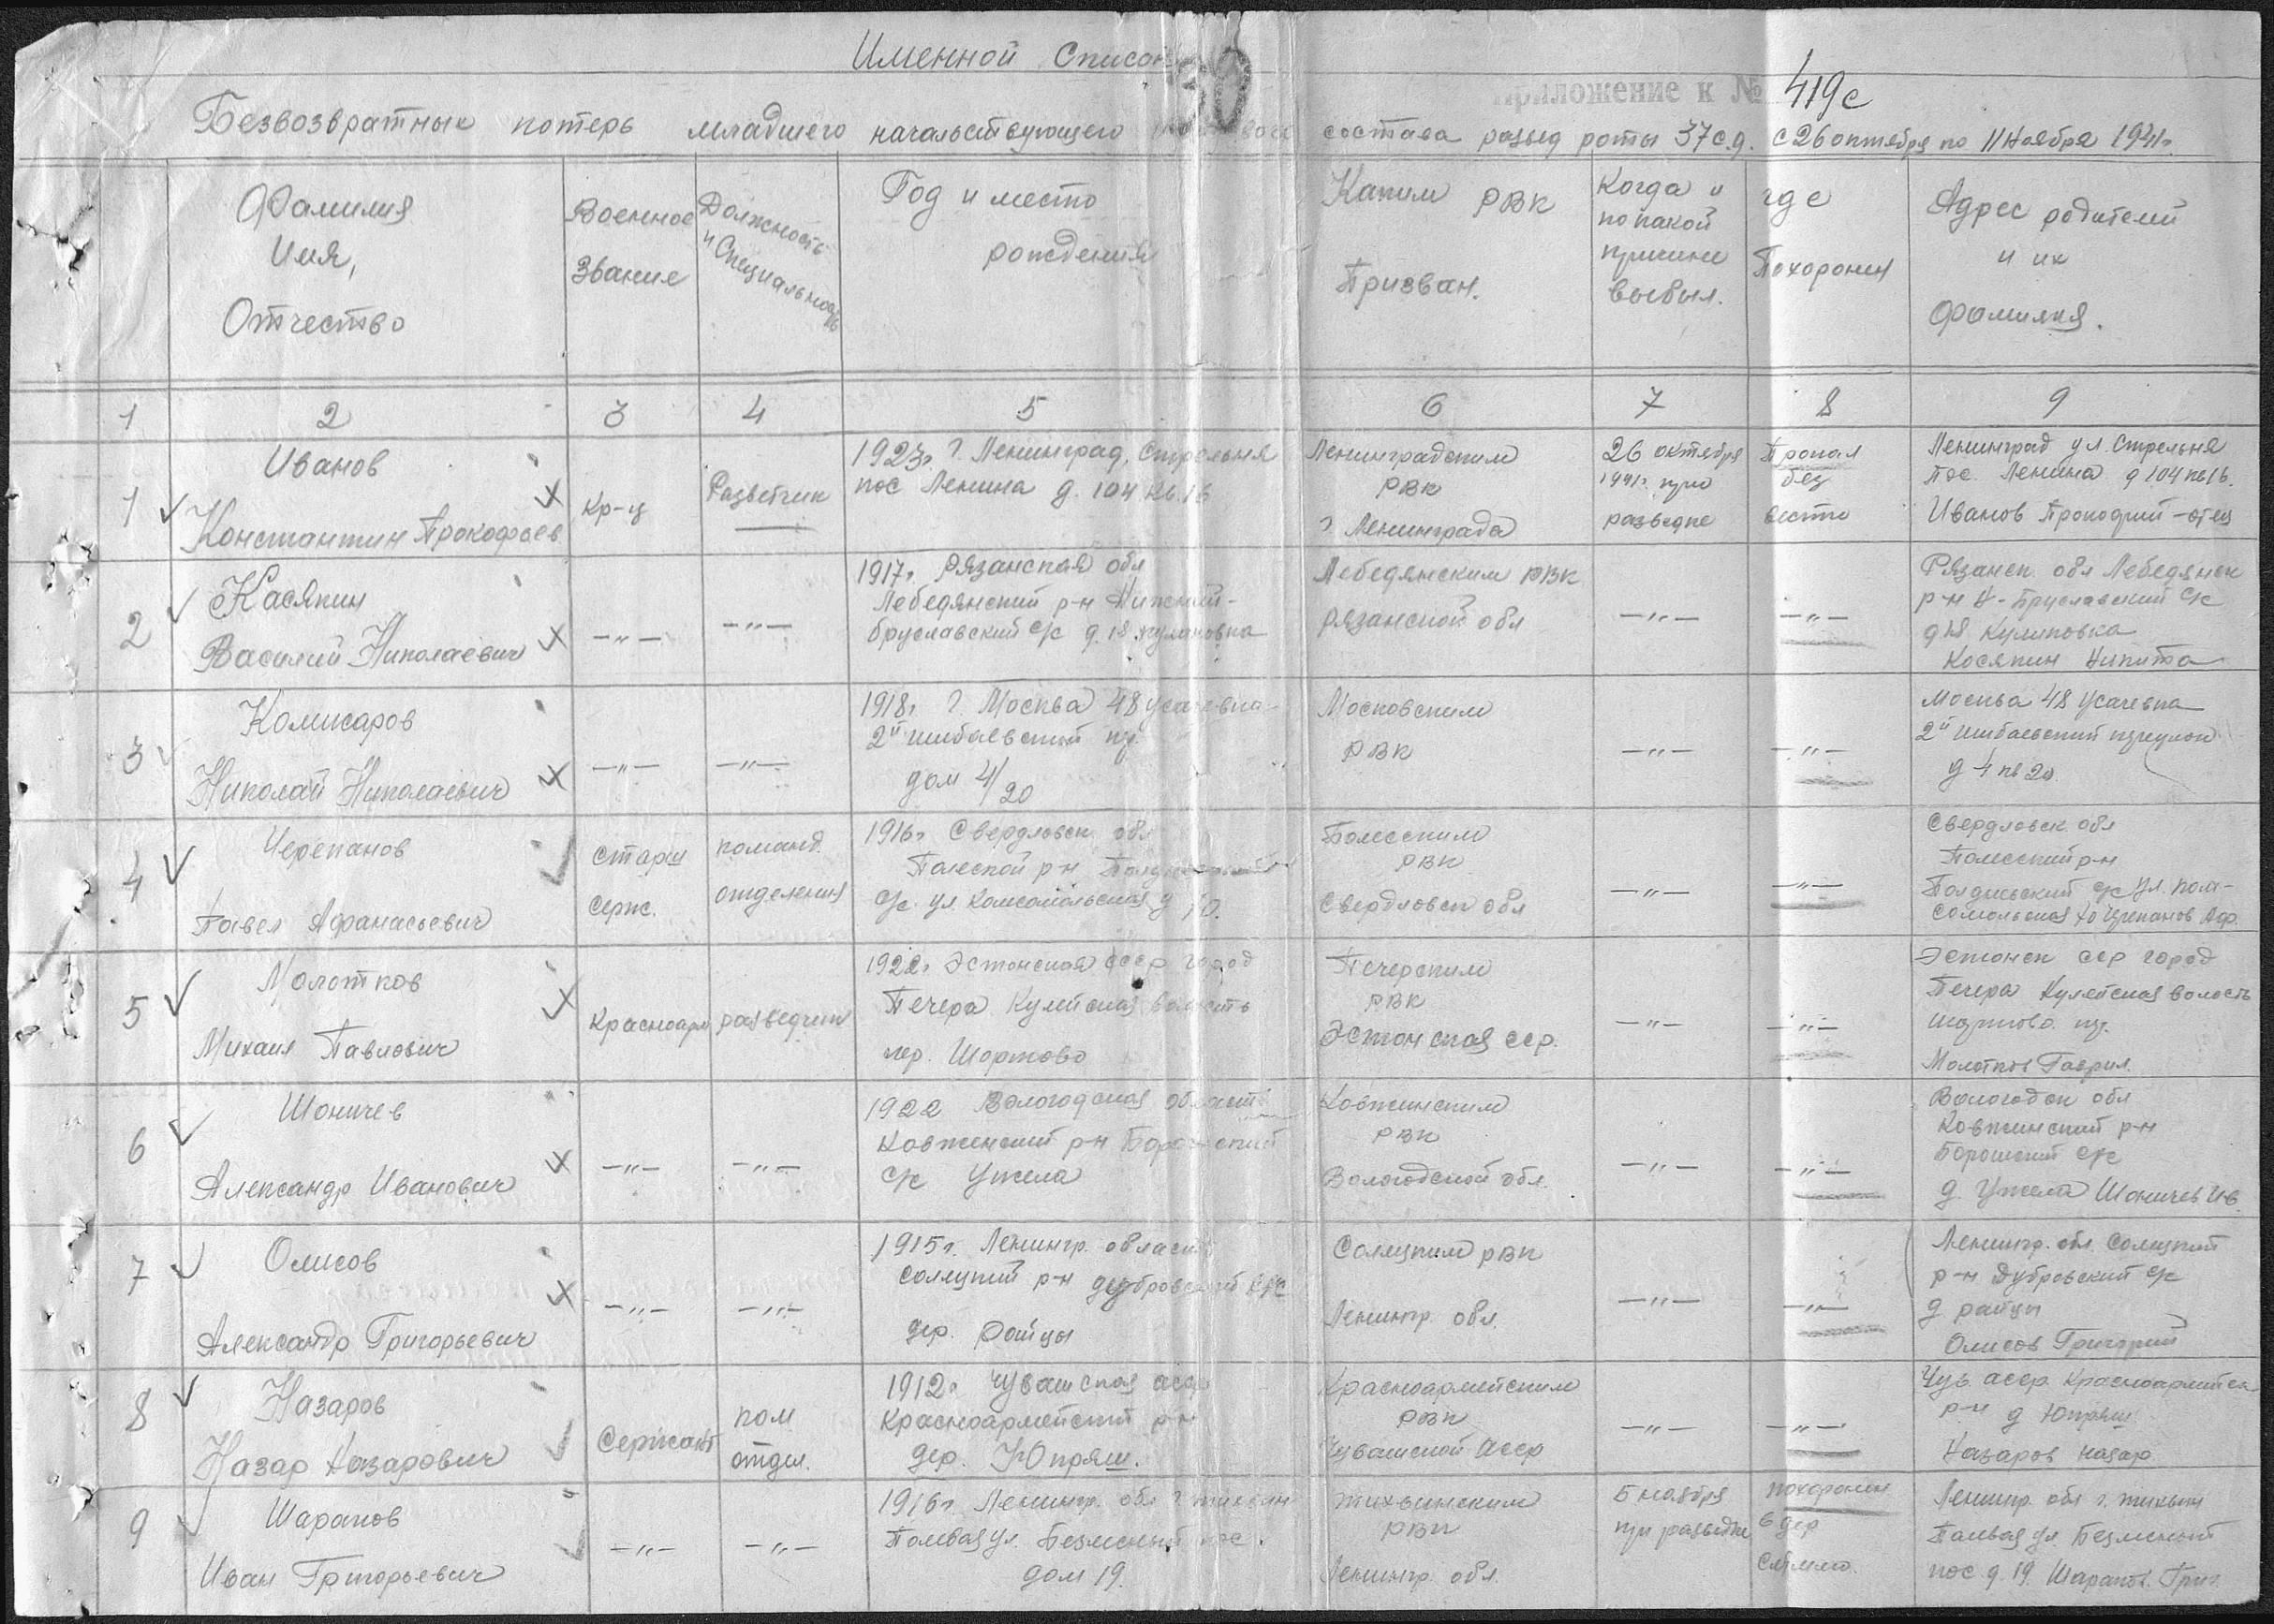 Именной Список
50
Приложение к № 419с
Безвозвратных потерь младшего начальствующего состава развед роты 37 с.д. с 26 октября по 11 Ноября 1941г.
Фамилия Имя, Отчество
Военное Звание
Должность и Специальность
Год и место рождения
Каким РВК Призван.
Когда и по какой причине выбыл.
где Похоронен
Адрес родителей и их фамилия.
1 2 3 4 5 6 7 8 9
1 Иванов
Константин Прокофьев
Кр-ц
Разветчик
1923г. г. Ленинград, Стрельня
пос Ленина д. 104 кв. 16
Ленинградским
РВК
г Ленинграда
26 октября
1941г. при
разведке
Пропал
без
вести
Ленинград ул. Стрельня
Пос. Ленина д 104 кв 16.
Иванов Прокофий - отец
2 Касякин
Василий Николаевич
—"—
—"—
1917г. Рязанская обл
Лебедянский р-н Нижний-
бруславский с/с д. 18 куликовка
Лебедянским РВК
Рязанской обл
—"—
—"—
Рязанск. обл Лебедянск
р-н Н-Бруславский с/с
д 18 Куликовка
Косякин Никита
3 Комисаров
Николай Николаевич
—"—
—"—
1918г. г. Москва 48 усачевка
2й
дом 4/20
Московским
РВК
—"—
—"—
Москва 48 Усачевка
2й
д 4 кв 20.
4 Черепанов
Павел Афанасьевич
Старш
серж.
команд.
отделения
1916г. Свердловск. обл
р-н
с/с. ул. Комсомольская д 70.
РВК
Свердловск обл
—"—
—"—
Свердловск. обл
р-н
с/с ул. Ком-
сомольская 70 Черепанов Аф.
5 Молотков
Михаил Павлович
Красноарм
разведчик
1922г. Эстонская ССР город
Печера Кулейская волость
дер. Шортово
Печерским
РВК
Эстонская ССР.
—"—
—"—
Эстонск ССР город
Печера Кулейская волость
Молотков Гаврил.
6 Шоничев
Александр Иванович
—"—
—"—
1922 Вологодская област
Ковженский р-н
с/с Ужела
Ковжинским
РВК
Вологодской обл.
—"—
—"—
Вологодск обл
Ковжинский р-н
с/с
д. Ужела Шоничев Ив.
7 Олисов
Александр Григорьевич
—"—
—"—
1915г. Ленингр. област
солецкий р-н дубровский с/с
дер. Райцы
Солецким РВК
Ленингр. обл.
—"—
—"—
Ленингр. обл. Солецкий
р-н Дубровский с/с
д райцы
Олисов Григорий
8 Назаров
Назар Назарович
Сержант
ком
отдел.
1912г. Чувашская асср
Красноармейский р-н
дер. Юпряш.
Красноармейским
РВК
Чувашской Асср
—"—
—"—
Чув. асср Красноармейск
р-н д Юпряш
Назаров Назар.
9 Шарапов
Иван Григорьевич
—"—
—"—
1916г. Ленингр. обл г. тихвин
ул. пос.
дом 19.
Тихвинским
РВК
Ленингр. обл.
5 ноября
при разведке
похоронен
в дер
Ленингр. обл г. тихвин
ул
пос д. 19. Шарапов Григ.